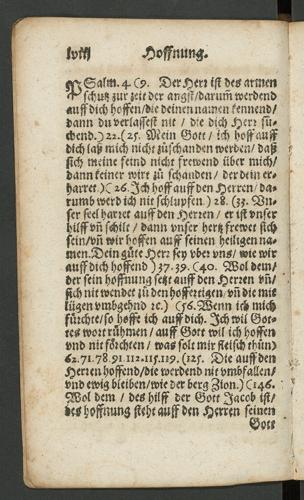 lviij Hoffnung.
PSalm. 4 (9. Der Herr ist des armen
schutz zur zeit der angst/darum̃ werdend
auff dich hoffen/die deinen namen kennend/
dann du verlassest nit / die dich Herr sů-
chend.) 22.(25. Mein Gott / ich hoff auff
dich laß mich nicht zůschanden werden/ daß
sich meine feind nicht frewend über mich/
dann keiner wirt zů schanden / der dein er-
harret.)(26. Ich hoff auff den Herren/ da-
rumb werd ich nit schlupfen.) 28. (33. Vn-
ser seel harret auff den Herren / er ist vnser
hilff vñ schilt / dann vnser hertz frewet sich
sein/vñ wir hoffen auff seinen heiligen na-
men. Dein güte Herr sey vber vns/ wie wir
auff dich hoffend )37.39.(40. Wol dem/
der sein hoffnung setzt auff den Herren vñ/
sich nit wendet zů den hoffertigen/ vñ die mit
lügen vmbgehnd ꝛc.) (56. Wenn ich mich
fürchte/so hoffe ich auff dich. Ich wil Got-
tes wort rühmen/ auff Gott will ich hoffen
vnd nit förchten/ was solt mir fleisch thůn)
62.71.78.91.112.115.119.(125. Die auff den
Herren hoffend/die werdend nit vmbfallen/
vnd ewig bleiben/wie der berg Zion.) (146.
Wol dem / des hilff der Gott Jacob ist/
des hoffnung steht auff den Herren seinen
Gott